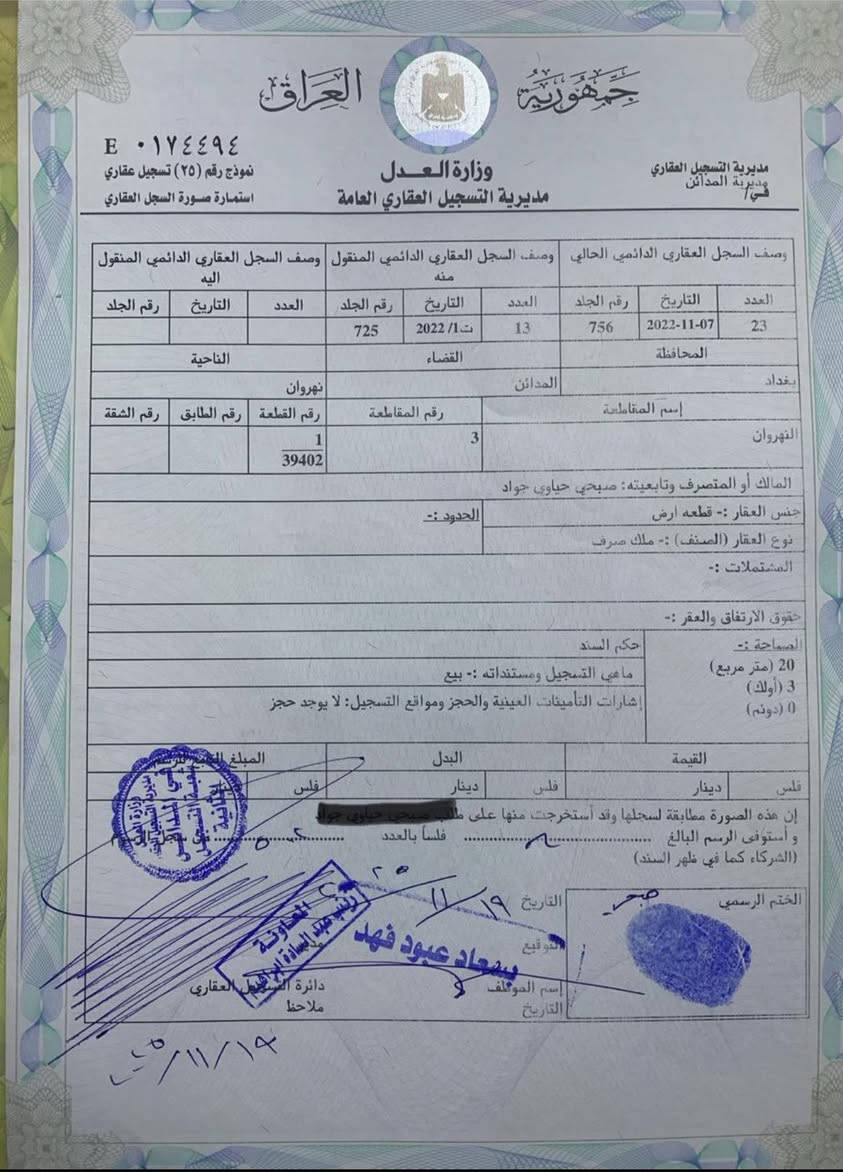 جمهورية العراق
E ٠١٧٤٤٩٤
نموذج رقم (٢٥) تسجيل عقاري
استمارة صورة السجل العقاري
وزارة العدل
مديرية التسجيل العقاري العامة
مديرية التسجيل العقاري
في/
مديرية المدائن
وصف السجل العقاري الدائمي الحالي
وصف السجل العقاري الدائمي المنقول منه
وصف السجل العقاري الدائمي المنقول اليه
العدد التاريخ رقم الجلد العدد التاريخ رقم الجلد العدد التاريخ رقم الجلد
23 2022-11-07 756 13 ت1/ 2022 725
المحافظة القضاء الناحية
بغداد المدائن نهروان
إسم المقاطعة رقم المقاطعة رقم القطعة رقم الطابق رقم الشقة
النهروان 3 1
39402
المالك أو المتصرف وتابعيته: صبحي حياوي جواد
جنس العقار :- قطعه ارض الحدود :-
نوع العقار (الصنف) :- ملك صرف
المشتملات :-
حقوق الارتفاق والعقر :-
المساحة :-
20 (متر مربع)
3 (أولك)
0 (دونم)
حكم السند
ماهي التسجيل ومستنداته :- بيع
إشارات التأمينات العينية والحجز ومواقع التسجيل: لا يوجد حجز
القيمة البدل المبلغ
فلس دينار فلس دينار فلس
إن هذه الصورة مطابقة لسجلها وقد أستخرجت منها على
و أستوفى الرسم البالغ فلساً بالعدد في سجل
(الشركاء كما في ظهر السند)
الختم الرسمي
التاريخ ١٩/١١/
التوقيع
سعاد عبود فهد
إسم الموظف
التاريخ
المعاونة
دائرة التسجيل العقاري
ملاحظ
١٩/١١/